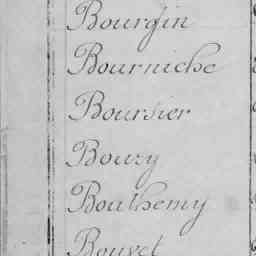 Bourgin
Bourniche
Boursier
Boury
Bouthemy
Bouvet